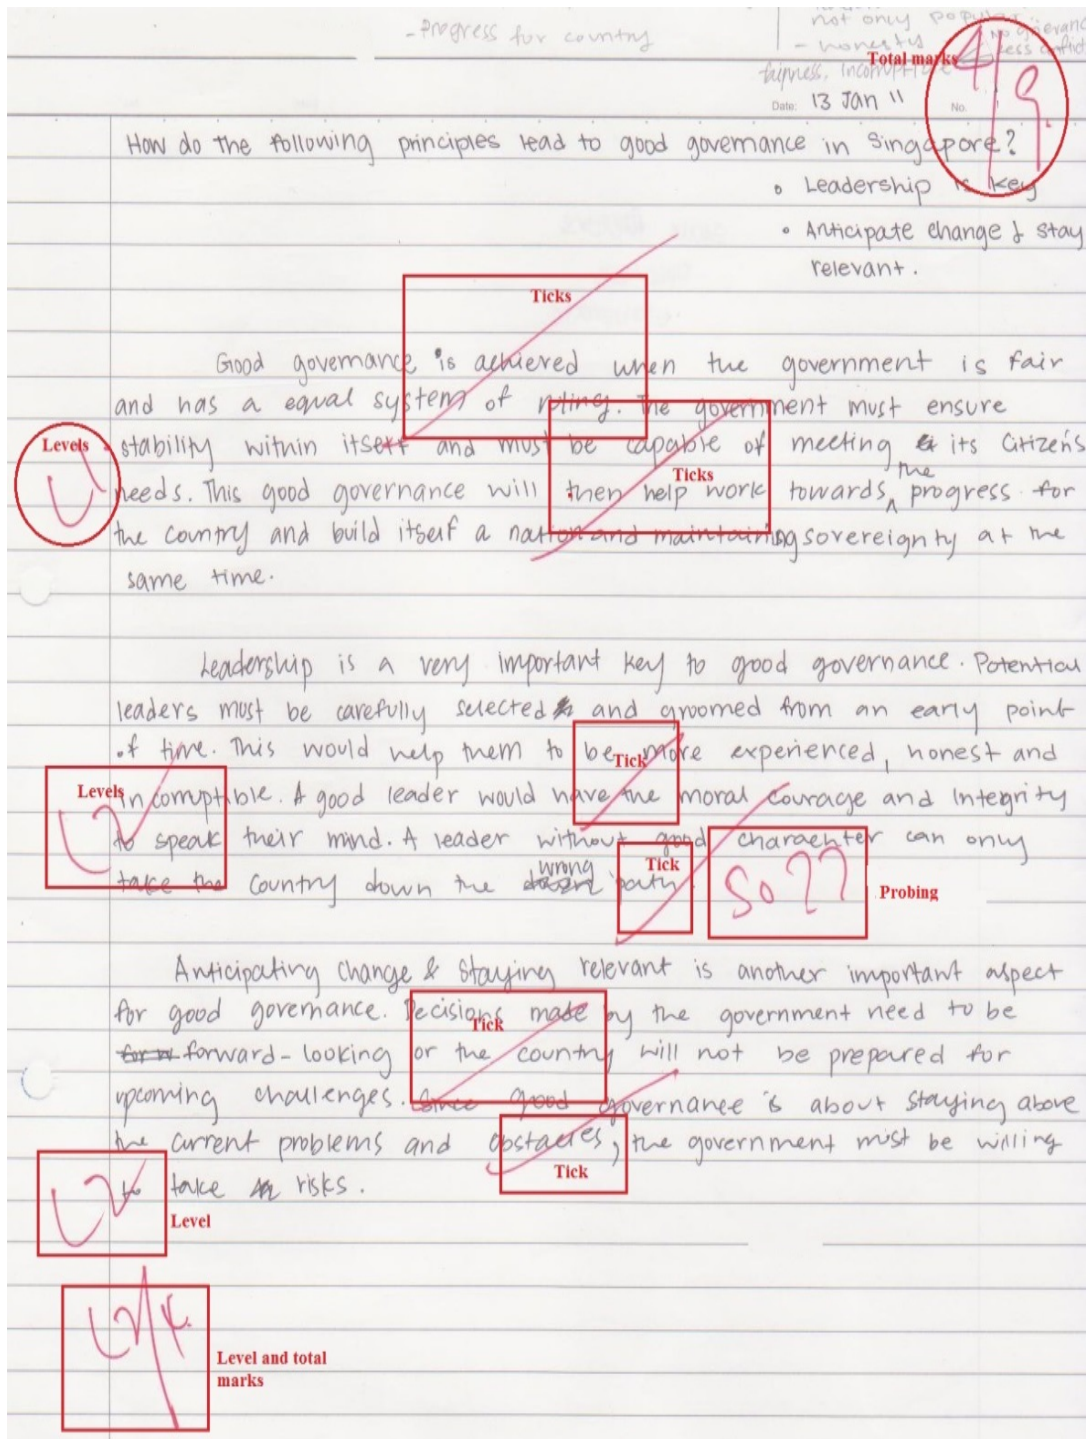 - Progress for country
not only
- honesty
fairness, incorruptible
Total marks
4/9
Date: 13 Jan 11 No.
How do the following principles lead to good governance in Singapore?
• Leadership is key
• Anticipate change & stay
relevant.
Ticks
Good governance is achieved when the government is fair
and has a equal system of ruling. The government must ensure
Levels
stability within itself and must be capable of meeting its citizen's
L1
Ticks
needs. This good governance will then help work towards the progress for
the country and build itself a nation and maintaining sovereignty at the
same time.
Leadership is a very important key to good governance. Potential
leaders must be carefully selected and groomed from an early point
of time. This would help them to be more experienced, honest and
Tick
Levels
incorruptible. A good leader would have the moral courage and integrity
L2
to speak their mind. A leader without good charachter can only
take the country down the wrong path.
Tick
So??
Probing
Anticipating change & staying relevant is another important aspect
for good governance. Decisions made by the government need to be
Tick
forward-looking or the country will not be prepared for
upcoming challenges. Since good governance is about staying above
the current problems and obstacles, the government must be willing
Tick
to take risks.
L2
Level
L2/4
Level and total
marks